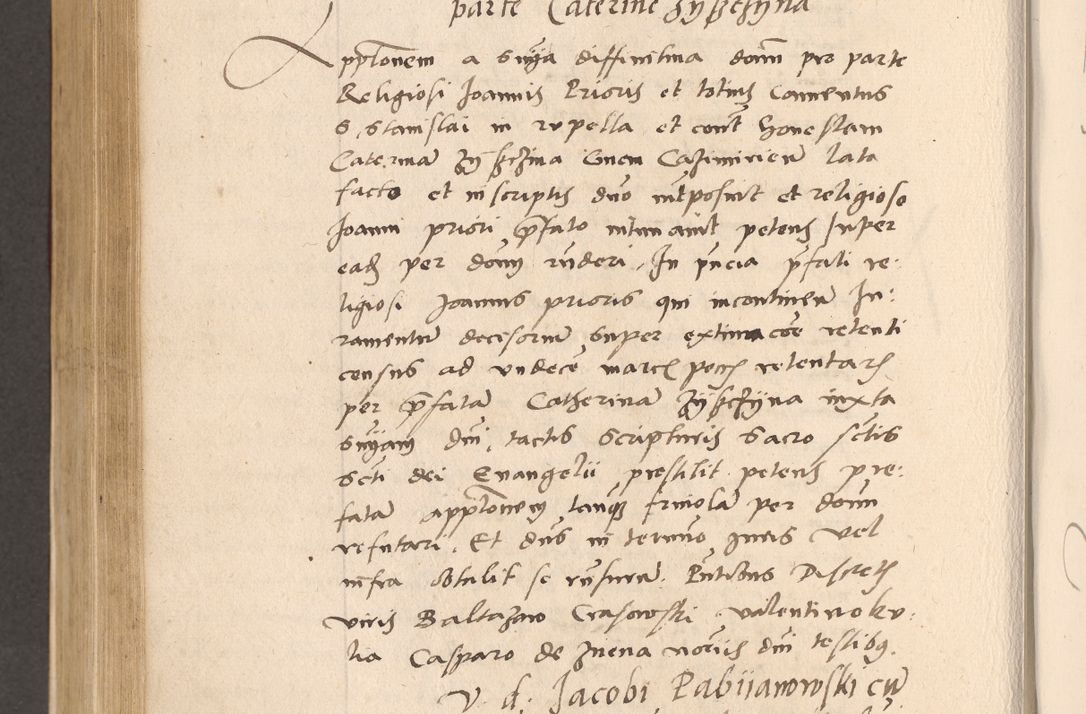 parte Caterine Zyßczyna
Appłonem a snia diffinitiua domi pro parte
Religiosi Joannis Prioris et totius Conuentus
S. Stanislai in rupella et contra honestam
Caterina Zyßczina Ciuem Cazimirien lata
facto et in scriptis duo interposuit et religioso
Joanni priori prefato intimauit petens super
eadem per domi rnderi. In pncia prefati re:
ligiosi Joannis prioris qui incontinen Ju:
ramentu decisoriu super extimacoe retenti
census ad undece marc pecus retentar
per prefata Catherina Zyßczyna iuxta
sniam dni, tactis scripturis sacro sctis
scti dei Euangelii prestitit petens pre:
fata appłonem tanq friuola per domi
refutari. Et dns in termino juris vel
infra obtulit se rnsuru. Pntibus Discretis
viris Baltazaro Crasowski Valentino ku:
lia Casparo de Znena notariis dni testibus.
V. d. Jacobi Pabijanowski cu